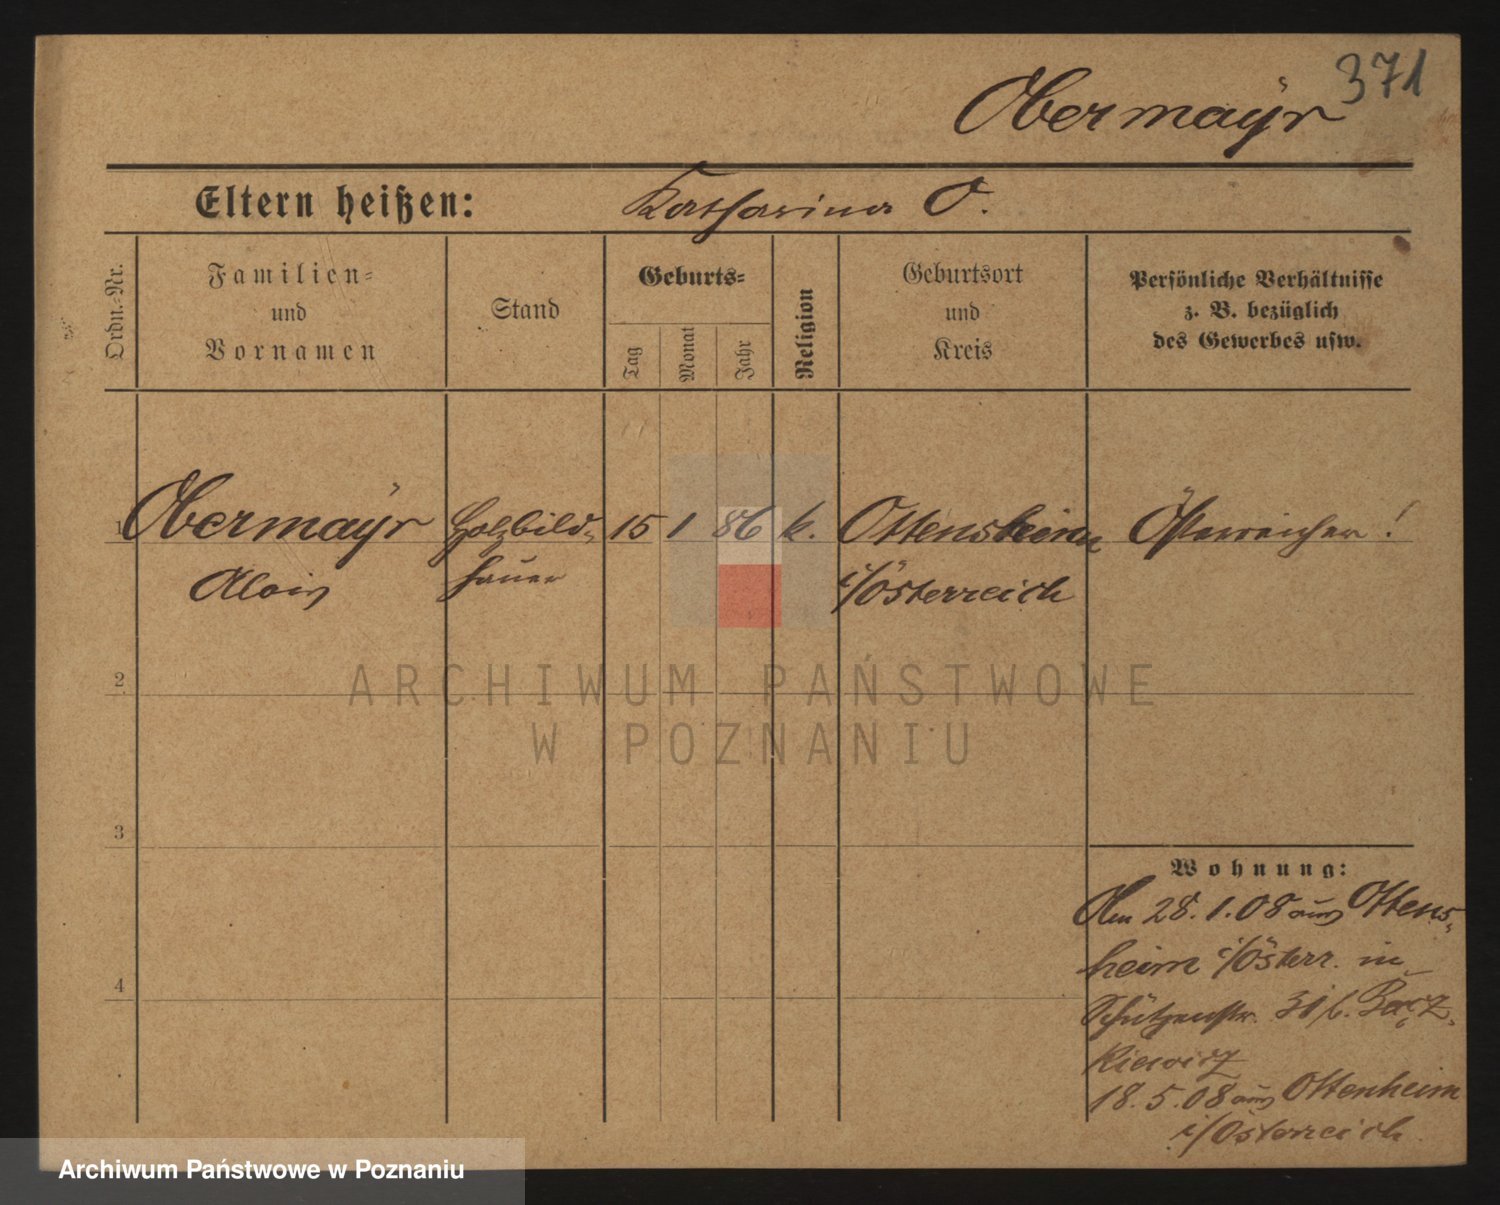 371
Obermaÿr
Eltern heißen: Katharina O.
Ordn.-Nr.
Familien- und Vornamen
Stand
Geburts-
Tag
Monat
Jahr
Religion
Geburtsort und Kreis
Persönliche Verhältnisse z. B. bezüglich des Gewerbes usw.
1 Obermaÿr Holzbild- 15 1 86 k. Ottensheim Österreicher!
Alois hauer i/Österreich
2
3
4
Wohnung:
Am 28.1.08 aus Ottens-
heim i/Österr. in
Schützenstr. 31 b.
kiewicz
18.5.08 aus Ottenheim
i/Österreich
ARCHIWUM PAŃSTWOWE
W POZNANIU
Archiwum Państwowe w Poznaniu